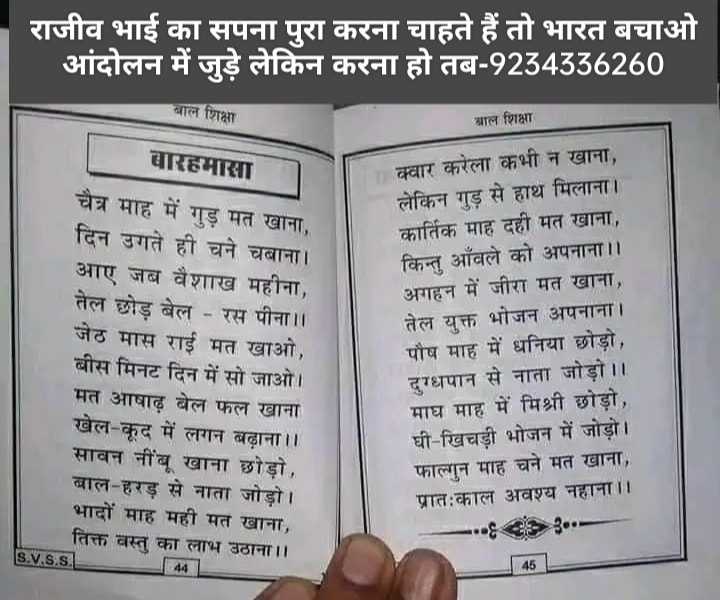 राजीव भाई का सपना पुरा करना चाहते हैं तो भारत बचाओ
आंदोलन में जुड़े लेकिन करना हो तब-9234336260
बाल शिक्षा
बारहमासा
चैत्र माह में गुड़ मत खाना,
दिन उगते ही चने चबाना।
आए जब वैशाख महीना,
तेल छोड़ बेल - रस पीना।।
जेठ मास राई मत खाओ,
बीस मिनट दिन में सो जाओ।
मत आषाढ़ बेल फल खाना
खेल-कूद में लगन बढ़ाना।।
सावन नींबू खाना छोड़ो,
बाल-हरड़ से नाता जोड़ो।
भादों माह मही मत खाना,
तिक्त वस्तु का लाभ उठाना।।
S.V.S.S.
44
बाल शिक्षा
क्वार करेला कभी न खाना,
लेकिन गुड़ से हाथ मिलाना।
कार्तिक माह दही मत खाना,
किन्तु आँवले को अपनाना।।
अगहन में जीरा मत खाना,
तेल युक्त भोजन अपनाना।
पौष माह में धनिया छोड़ो,
दुग्धपान से नाता जोड़ो।।
माघ माह में मिश्री छोड़ो,
घी-खिचड़ी भोजन में जोड़ो।
फाल्गुन माह चने मत खाना,
प्रात:काल अवश्य नहाना।।
45